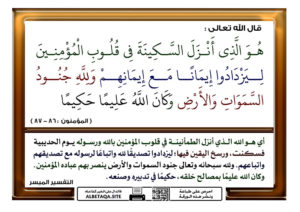 قال الله تعالى :
هُوَ الَّذِي أَنْزَلَ السَّكِينَةَ فِي قُلُوبِ الْمُؤْمِنِينَ
لِيَزْدَادُوا إِيمَانًا مَعَ إِيمَانِهِمْ وَلِلَّهِ جُنُودُ
السَّمَوَاتِ وَالْأَرْضِ وَكَانَ اللَّهُ عَلِيمًا حَكِيمًا
(المؤمنون : ٨٦ - ٨٧)
أي هو الله الذي أنزل الطمأنينة في قلوب المؤمنين بالله ورسوله يوم الحديبية
فسكنت، ورسخ اليقين فيها؛ ليزدادوا تصديقًا لله واتباعًا لرسوله مع تصديقهم
واتباعهم. ولله سبحانه وتعالى جنود السموات والأرض ينصر بهم عباده المؤمنين.
وكان الله عليمًا بمصالح خلقه، حكيمًا في تدبيره وصنعه.
التفسير الميسر
ALBETAQA.SITE